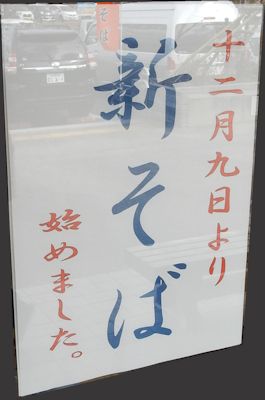 十二月九日より
新そば
始めました。
そば